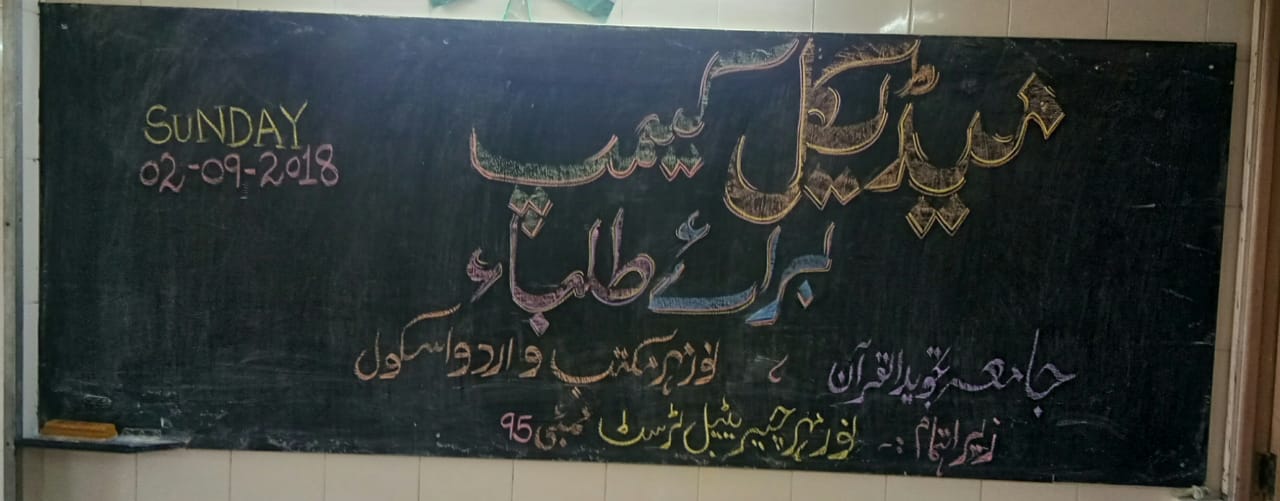 میڈیکل کیمپ
SUNDAY
02-09-2018
برائے طلباء
جامعہ تجوید القرآن ، نور مہر مکتب و اردو اسکول
زیر اہتمام :- نور مہر چیریٹیبل ٹرسٹ ممبئی 95